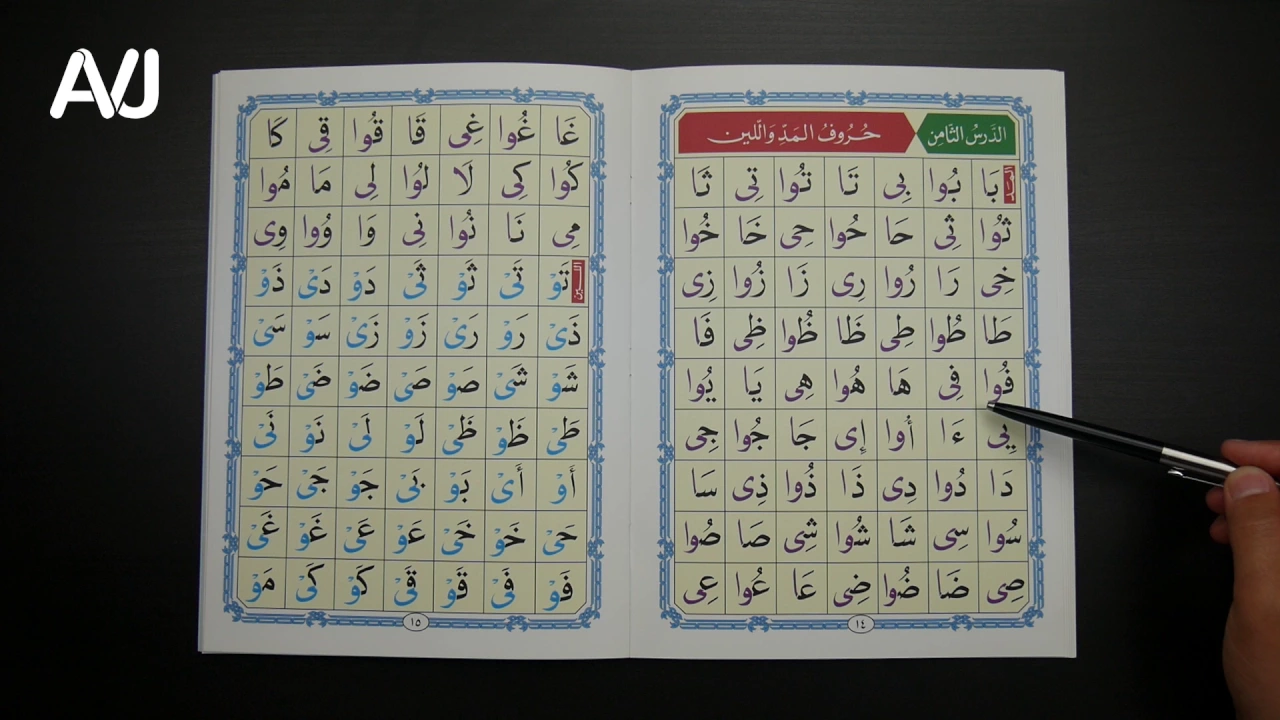 AVJ
الدَّرسُ الثَّامِن حُرُوفُ المَدِّ وَاللّين
المد
بَا بُوا بِى تَا تُوا تِى ثَا
ثُوا ثِى حَا حُوا حِى خَا خُوا
خِى رَا رُوا رِى زَا زُوا زِى
طَا طُوا طِى ظَا ظُوا ظِى فَا
فُوا فِى هَا هُوا هِى يَا يُوا
يِى ءَا أُوا إِى جَا جُوا جِى
دَا دُوا دِى ذَا ذُوا ذِى سَا
سُوا سِى شَا شُوا شِى صَا صُوا
صِى ضَا ضُوا ضِى عَا عُوا عِى
١٤
غَا غُوا غِى قَا قُوا قِى كَا
كُوا كِى لَا لُوا لِى مَا مُوا
مِى نَا نُوا نِى وَا وُوا وِى
اللين
تَوْ تَىْ ثَوْ ثَىْ دَوْ دَىْ ذَوْ
ذَىْ رَوْ رَىْ زَوْ زَىْ سَوْ سَىْ
شَوْ شَىْ صَوْ صَىْ ضَوْ ضَىْ طَوْ
طَىْ ظَوْ ظَىْ لَوْ لَىْ نَوْ نَىْ
أَوْ أَىْ بَوْ بَىْ جَوْ جَىْ حَوْ
حَىْ خَوْ خَىْ عَوْ عَىْ غَوْ غَىْ
فَوْ فَىْ قَوْ قَىْ كَوْ كَىْ مَوْ
١٥